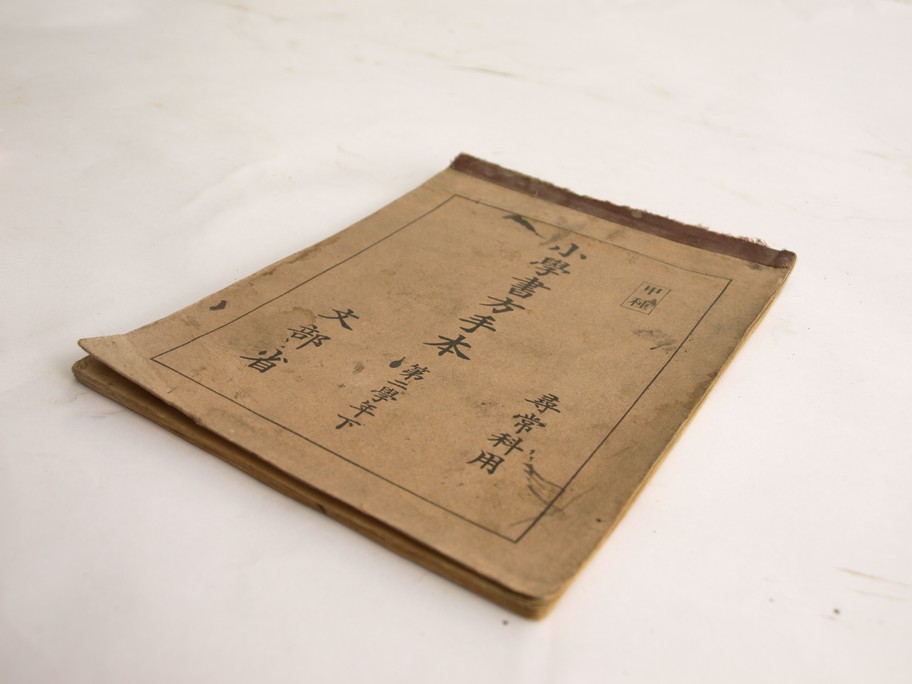 甲種
尋常科用
小學書方手本
第二學年下
文部省